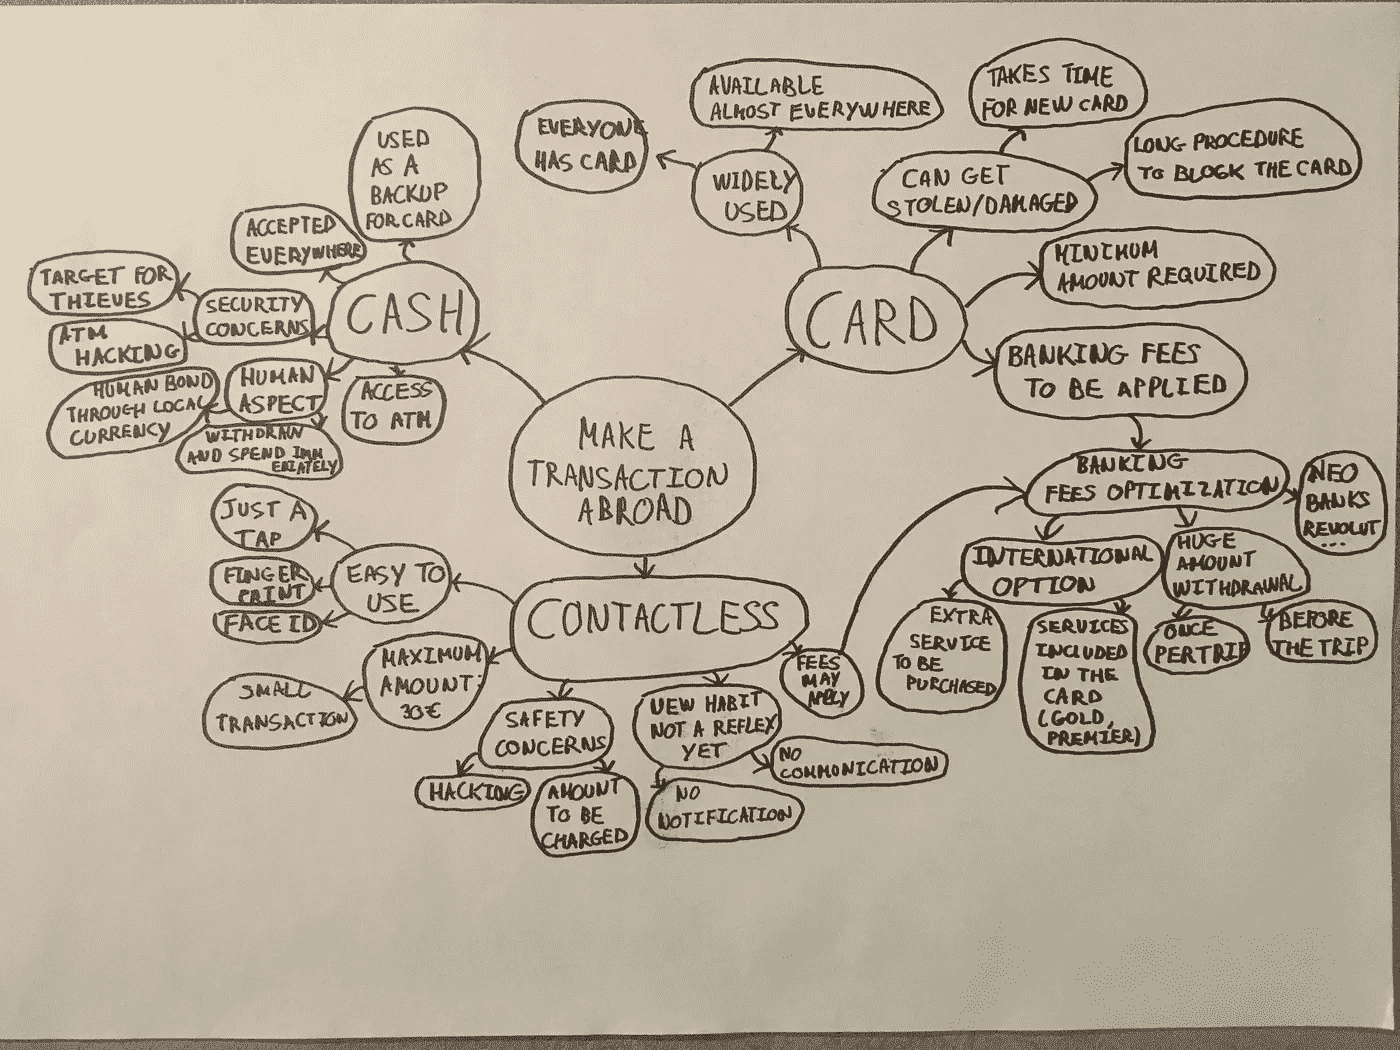 MAKE A
TRANSACTION
ABROAD
CASH
USED
AS A
BACKUP
FOR CARD
ACCEPTED
EVERYWHERE
SECURITY
CONCERNS
TARGET FOR
THIEVES
ATM
HACKING
HUMAN
ASPECT
HUMAN BOND
THROUGH LOCAL
CURRENCY
WITHDRAW
AND SPEND IMM
EDIATELY
ACCESS
TO ATM
CARD
WIDELY
USED
EVERYONE
HAS CARD
AVAILABLE
ALMOST EVERYWHERE
CAN GET
STOLEN/DAMAGED
TAKES TIME
FOR NEW CARD
LONG PROCEDURE
TO BLOCK THE CARD
MINIMUM
AMOUNT REQUIRED
BANKING FEES
TO BE APPLIED
BANKING
FEES OPTIMIZATION
NEO
BANKS
REVOLUT
...
INTERNATIONAL
OPTION
EXTRA
SERVICE
TO BE
PURCHASED
SERVICES
INCLUDED
IN THE
CARD
(GOLD,
PREMIER)
HUGE
AMOUNT
WITHDRAWAL
ONCE
PER TRIP
BEFORE
THE TRIP
CONTACTLESS
EASY TO
USE
JUST A
TAP
FINGER
PRINT
FACE ID
MAXIMUM
AMOUNT:
30€
SMALL
TRANSACTION
SAFETY
CONCERNS
HACKING
AMOUNT
TO BE
CHARGED
NEW HABIT
NOT A REFLEX
YET
NO
NOTIFICATION
NO
COMMUNICATION
FEES
MAY
APPLY